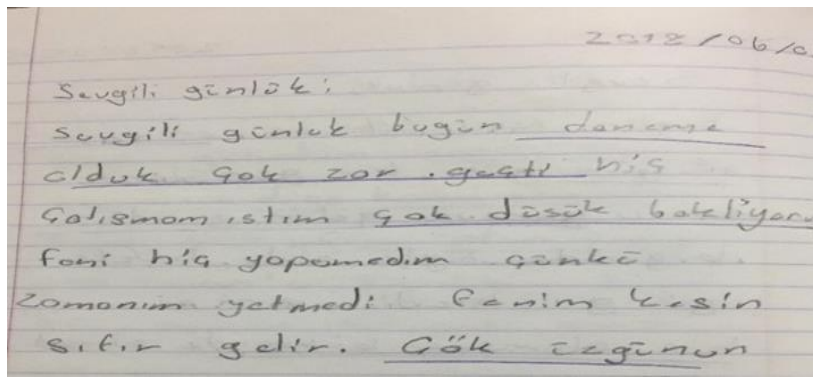 2018/06/0
Sevgili günlük:
Sevgili günlük bugün deneme
olduk çok zor. geçti hiç
Çalışmamıştım çok düşük bekliyoru
feni hiç yapamadım çünkü
zamanım yetmedi fenim kesin
sıfır gelir. Çök üzgünün